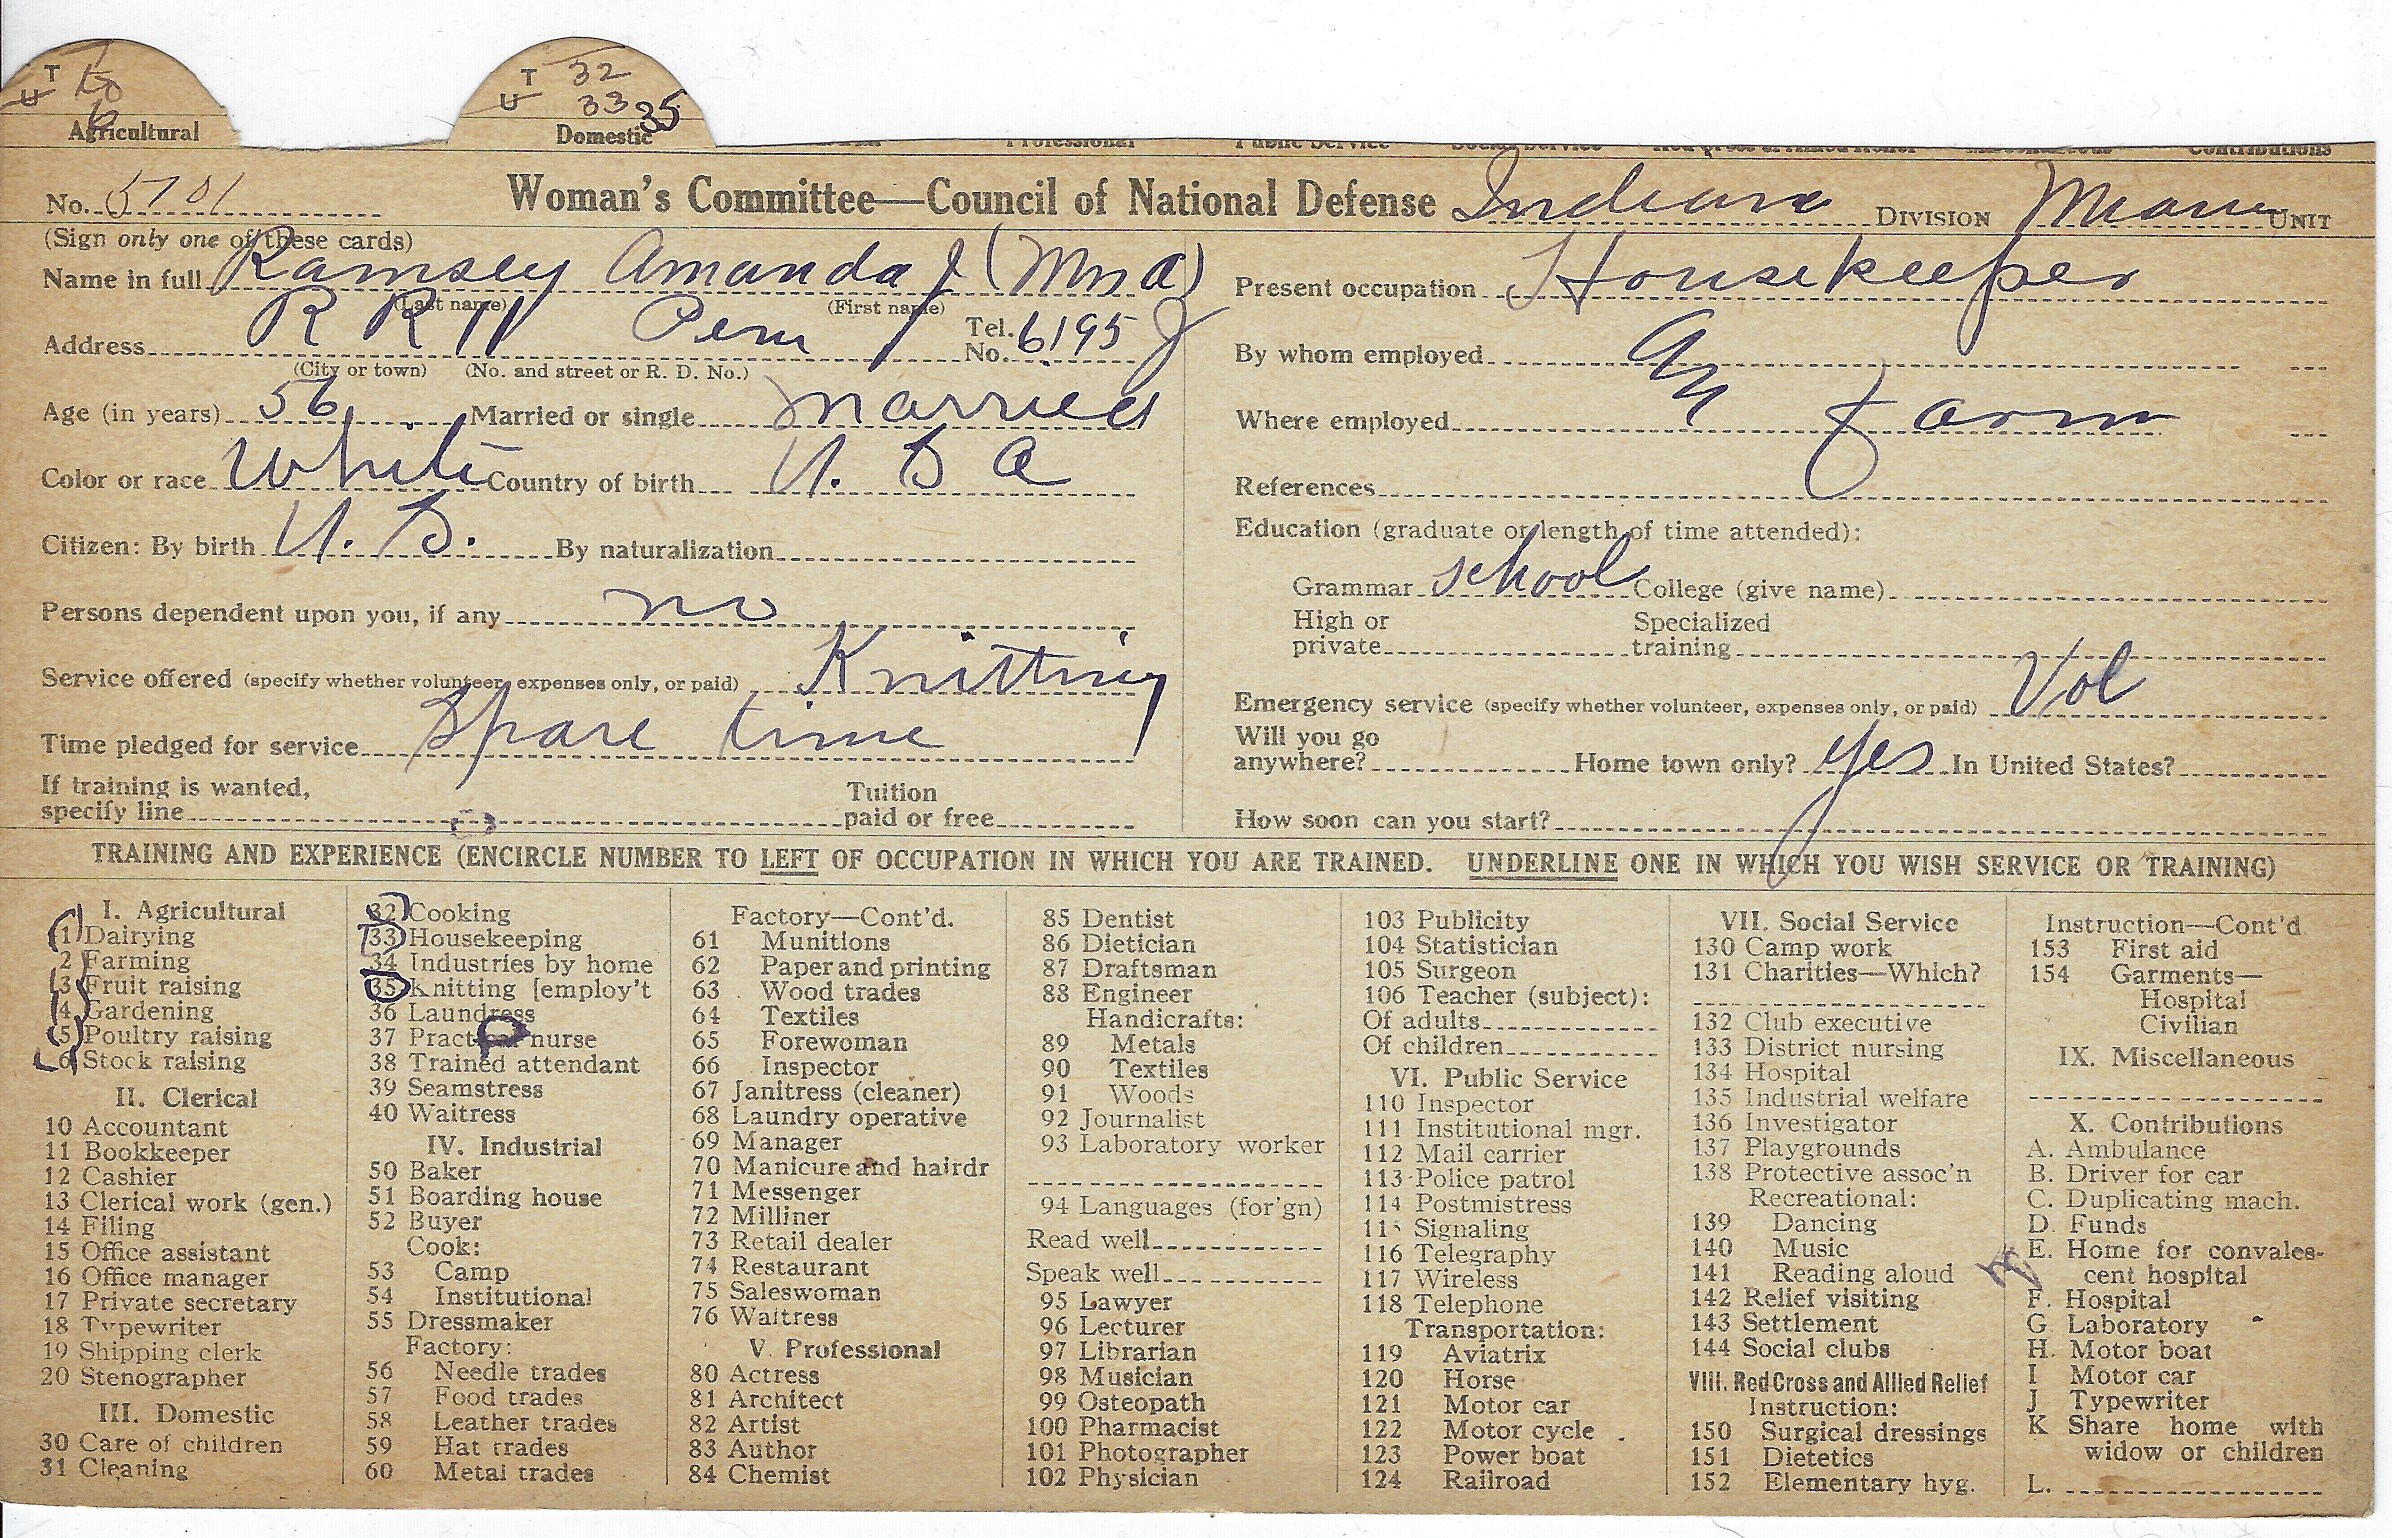 T
U
6
Agricultural
T 32
U 33 35
Domestic
Professional Public Service Social Service Contributions
No. 5701 Woman's Committee—Council of National Defense Indiana DIVISION Miami UNIT
(Sign only one of these cards)
Name in full Ramsey Amanda J (Mrs A)
(Last name) (First name)
Address R R 11 Peru Tel. No. 6195 J
(City or town) (No. and street or R. D. No.)
Age (in years) 56 Married or single married
Color or race White Country of birth U. S A
Citizen: By birth U. S. By naturalization
Persons dependent upon you, if any no
Service offered (specify whether volunteer, expenses only, or paid) Knitting
Time pledged for service Spare time
If training is wanted,
specify line
Tuition
paid or free
Present occupation Housekeeper
By whom employed
Where employed farm
References
Education (graduate or length of time attended):
Grammar school College (give name)
High or
private
Specialized
training
Emergency service (specify whether volunteer, expenses only, or paid) Vol
Will you go
anywhere? Home town only? yes In United States?
How soon can you start?
TRAINING AND EXPERIENCE (ENCIRCLE NUMBER TO LEFT OF OCCUPATION IN WHICH YOU ARE TRAINED. UNDERLINE ONE IN WHICH YOU WISH SERVICE OR TRAINING)
I. Agricultural
1 Dairying
2 Farming
3 Fruit raising
4 Gardening
5 Poultry raising
6 Stock raising
II. Clerical
10 Accountant
11 Bookkeeper
12 Cashier
13 Clerical work (gen.)
14 Filing
15 Office assistant
16 Office manager
17 Private secretary
18 Typewriter
19 Shipping clerk
20 Stenographer
III. Domestic
30 Care of children
31 Cleaning
32 Cooking
33 Housekeeping
34 Industries by home
35 Knitting [employ't
36 Laundress
37 Practical nurse
38 Trained attendant
39 Seamstress
40 Waitress
IV. Industrial
50 Baker
51 Boarding house
52 Buyer
Cook:
53 Camp
54 Institutional
55 Dressmaker
Factory:
56 Needle trades
57 Food trades
58 Leather trades
59 Hat trades
60 Metal trades
Factory—Cont'd.
61 Munitions
62 Paper and printing
63 Wood trades
64 Textiles
65 Forewoman
66 Inspector
67 Janitress (cleaner)
68 Laundry operative
69 Manager
70 Manicure and hairdr
71 Messenger
72 Milliner
73 Retail dealer
74 Restaurant
75 Saleswoman
76 Waitress
V. Professional
80 Actress
81 Architect
82 Artist
83 Author
84 Chemist
85 Dentist
86 Dietician
87 Draftsman
88 Engineer
Handicrafts:
89 Metals
90 Textiles
91 Woods
92 Journalist
93 Laboratory worker
94 Languages (for'gn)
Read well
Speak well
95 Lawyer
96 Lecturer
97 Librarian
98 Musician
99 Osteopath
100 Pharmacist
101 Photographer
102 Physician
103 Publicity
104 Statistician
105 Surgeon
106 Teacher (subject):
Of adults
Of children
VI. Public Service
110 Inspector
111 Institutional mgr.
112 Mail carrier
113 Police patrol
114 Postmistress
115 Signaling
116 Telegraphy
117 Wireless
118 Telephone
Transportation:
119 Aviatrix
120 Horse
121 Motor car
122 Motor cycle
123 Power boat
124 Railroad
VII. Social Service
130 Camp work
131 Charities—Which?
132 Club executive
133 District nursing
134 Hospital
135 Industrial welfare
136 Investigator
137 Playgrounds
138 Protective assoc'n
Recreational:
139 Dancing
140 Music
141 Reading aloud
142 Relief visiting
143 Settlement
144 Social clubs
VIII. Red Cross and Allied Relief
Instruction:
150 Surgical dressings
151 Dietetics
152 Elementary hyg.
Instruction—Cont'd
153 First aid
154 Garments—
Hospital
Civilian
IX. Miscellaneous
X. Contributions
A. Ambulance
B. Driver for car
C. Duplicating mach.
D. Funds
E. Home for convales-
cent hospital
F. Hospital
G. Laboratory
H. Motor boat
I Motor car
J Typewriter
K Share home with
widow or children
L.